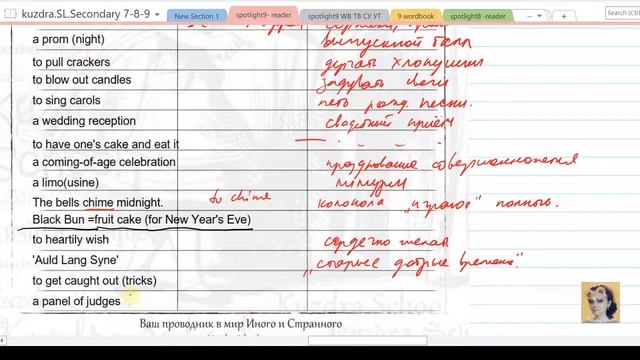 kuzdra.SL.Secondary 7-8-9
New Section 1
spotlight9- reader
spotlight9 WB TB СУ УТ
9 wordbook
spotlight8 -reader
Search (Ctrl+
a prom (night) выпускной балл
to pull crackers дергать хлопушки
to blow out candles задувать свечи
to sing carols петь рожд. песни.
a wedding reception свадебный приём
to have one's cake and eat it
a coming-of-age celebration празднование совершеннолетия
a limo(usine) лимузин
The bells chime midnight. to chime колокола "играют" полночь.
Black Bun =fruit cake (for New Year's Eve)
to heartily wish сердечно желать
'Auld Lang Syne' "старые добрые времена"
to get caught out (tricks)
a panel of judges
Ваш проводник в мир Иного и Странного